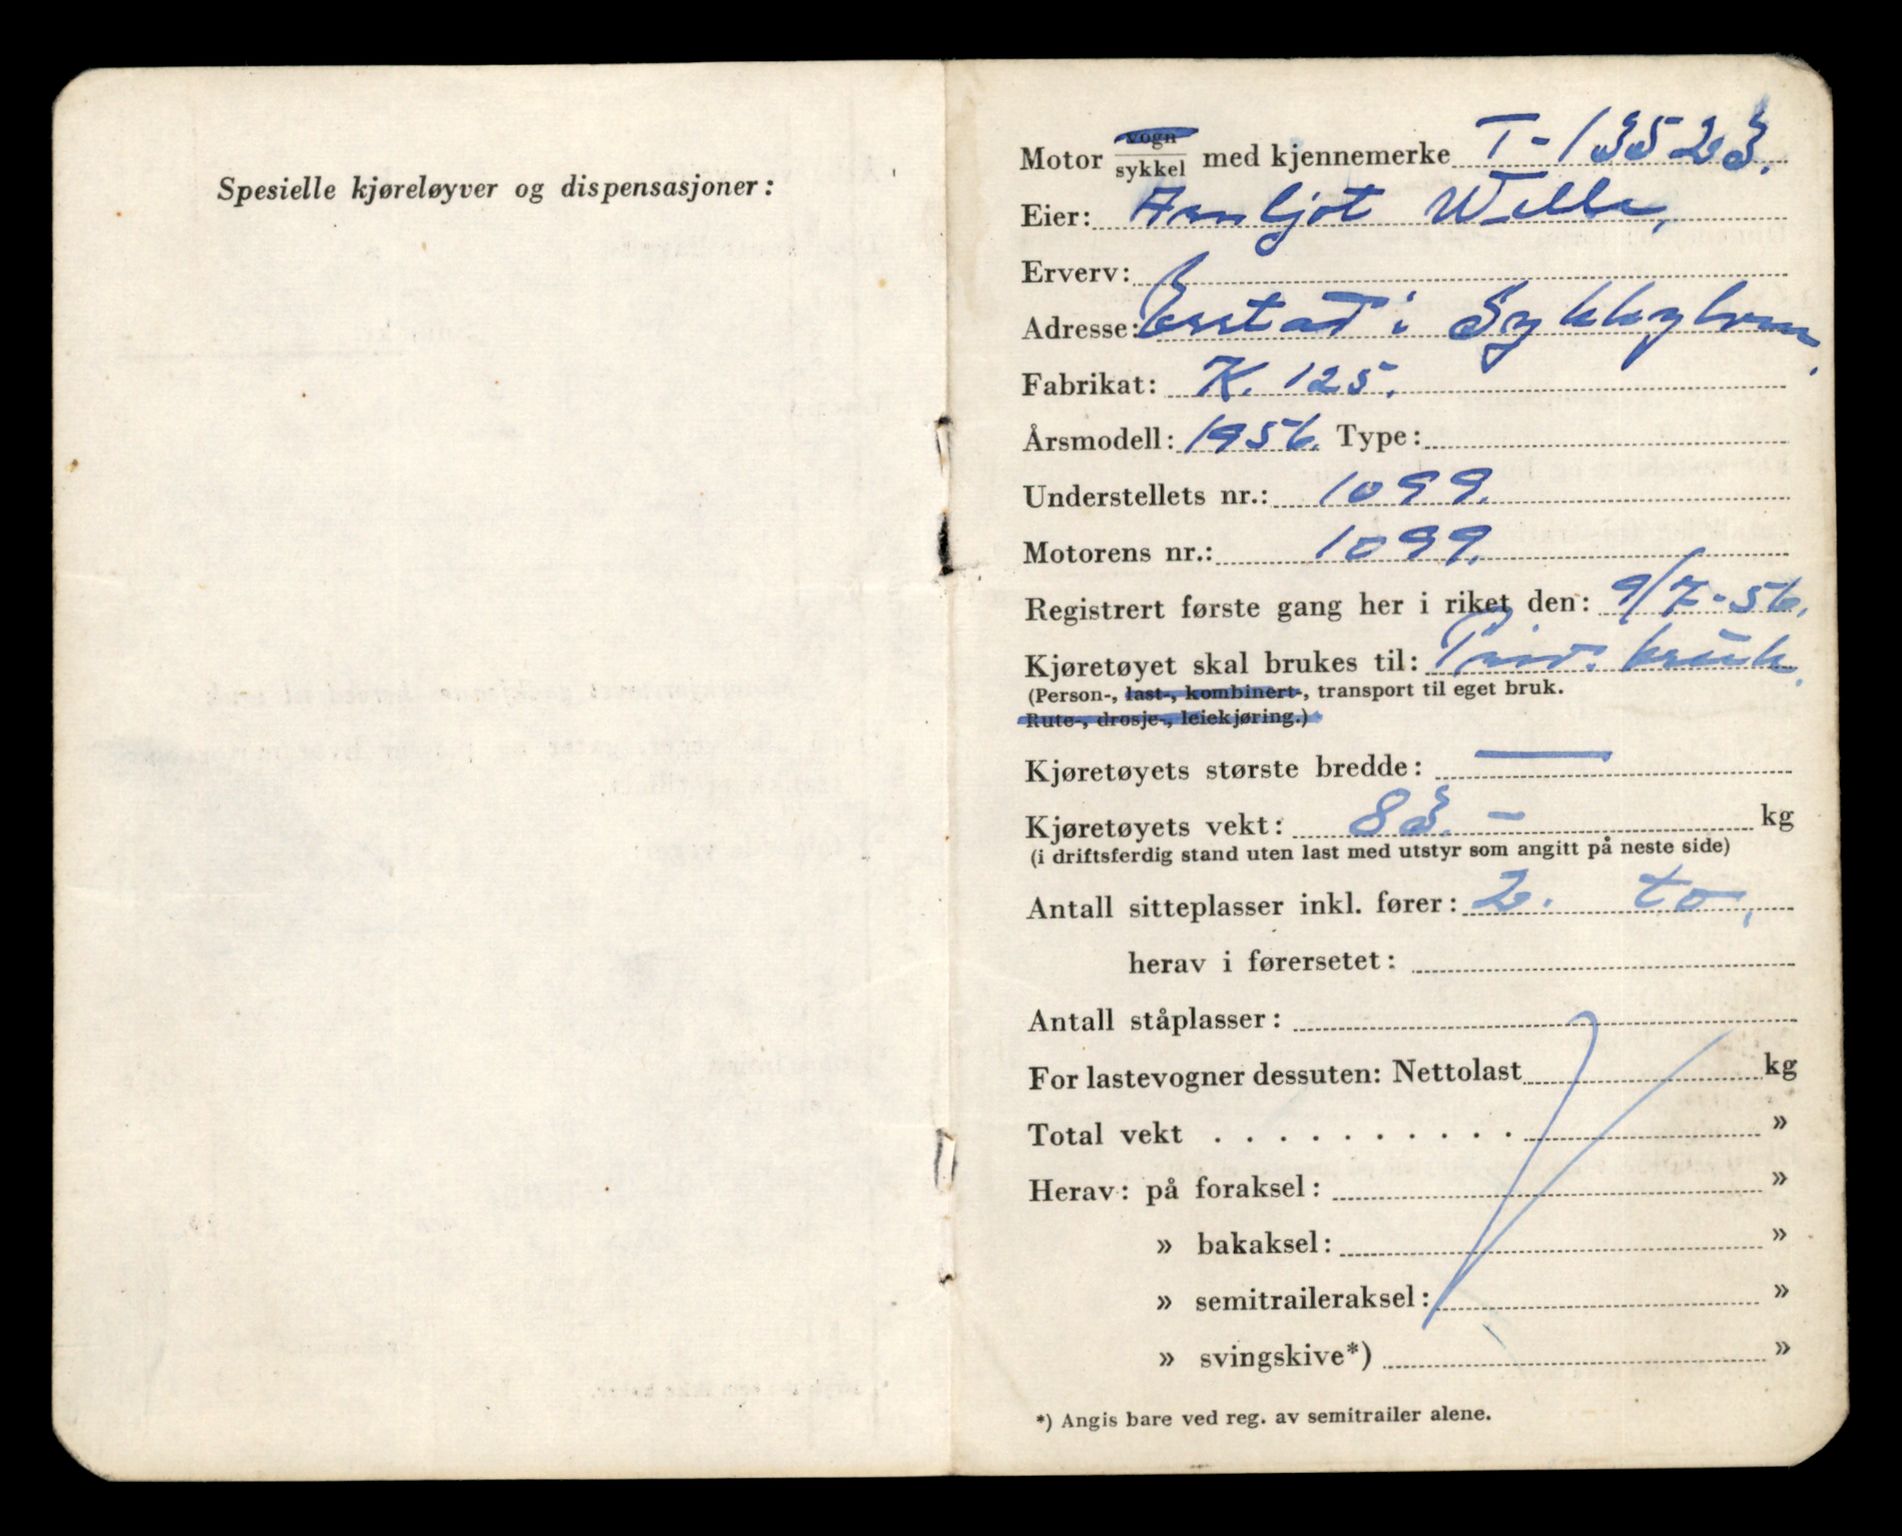 Spesielle kjøreløyver og dispensasjoner:
Motor vogn/sykkel med kjennemerke T-13523.
Eier: Arnljot Welle,
Erverv:
Adresse: i Sykkylven.
Fabrikat: K. 125.
Årsmodell: 1956. Type:
Understellets nr.: 1099.
Motorens nr.: 1099.
Registrert første gang her i riket den: 9/7-56.
Kjøretøyet skal brukes til: Priv. bruk.
(Person-, last-, kombinert-, transport til eget bruk.
Rute-, drosje-, leiekjøring.)
Kjøretøyets største bredde: —
Kjøretøyets vekt: 83. – kg
(i driftsferdig stand uten last med utstyr som angitt på neste side)
Antall sitteplasser inkl. fører: 2. to,
herav i førersetet:
Antall ståplasser:
For lastevogner dessuten: Nettolast kg
Total vekt . . . . . . . . . . »
Herav: på foraksel: »
» bakaksel: »
» semitraileraksel: »
» svingskive*) »
*) Angis bare ved reg. av semitrailer alene.